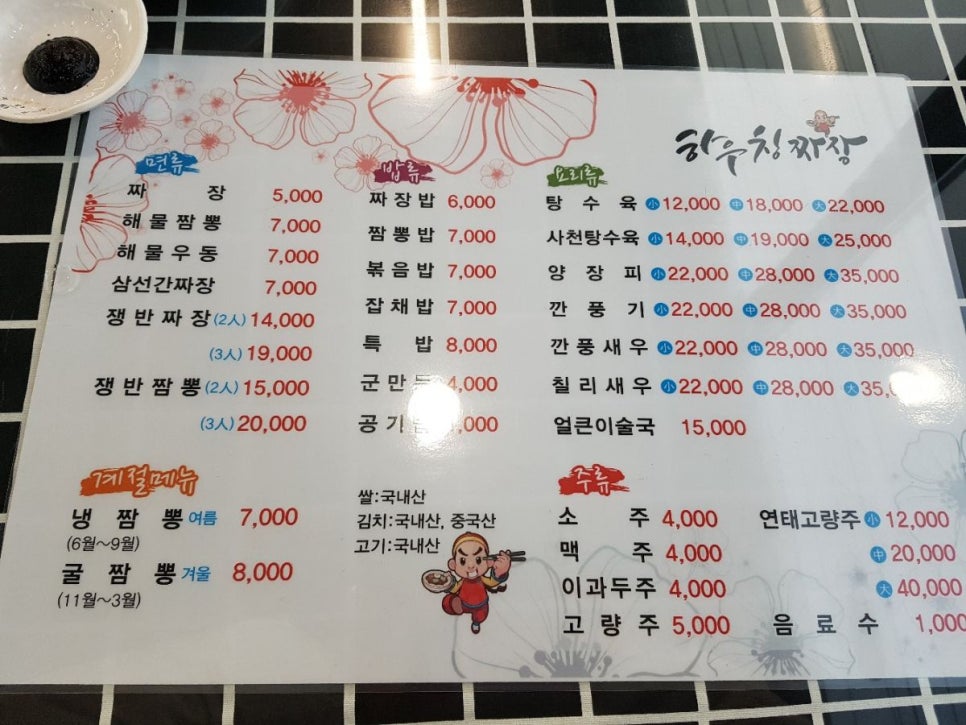 하우칭짜장
면류
짜 장 5,000
해물짬뽕 7,000
해물우동 7,000
삼선간짜장 7,000
쟁반짜장 (2人) 14,000
(3人) 19,000
쟁반짬뽕 (2人) 15,000
(3人) 20,000
밥류
짜장밥 6,000
짬뽕밥 7,000
볶음밥 7,000
잡채밥 7,000
특 밥 8,000
군만 4,000
공기 ,000
요리류
탕수육 小 12,000 中 18,000 大 22,000
사천탕수육 小 14,000 中 19,000 大 25,000
양장피 小 22,000 中 28,000 大 35,000
깐풍기 小 22,000 中 28,000 大 35,000
깐풍새우 小 22,000 中 28,000 大 35,000
칠리새우 小 22,000 中 28,000 大 35,
얼큰이술국 15,000
계절메뉴
냉짬뽕 여름 7,000
(6월~9월)
굴짬뽕 겨울 8,000
(11월~3월)
쌀:국내산
김치:국내산, 중국산
고기:국내산
주류
소 주 4,000
맥 주 4,000
이과두주 4,000
고량주 5,000
연태고량주 小 12,000
中 20,000
大 40,000
음료수 1,000